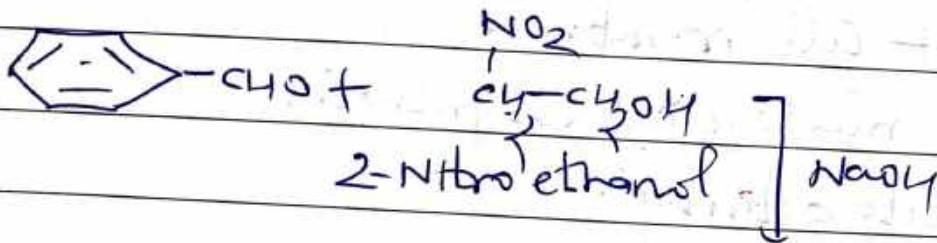 NO2
-CHO + CH2-CH2OH
2-Nitro ethanol NaOH